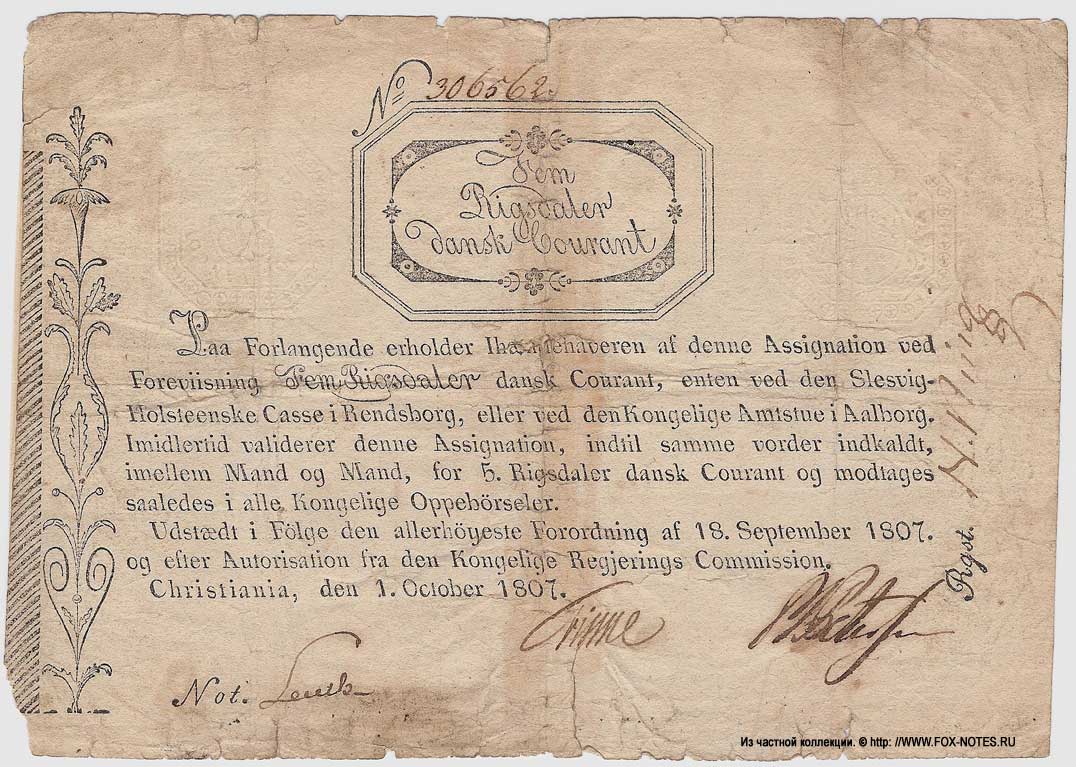 No 306562.
Fem
Rigsdaler
dansk Courant
Paa Forlangende erholder Ihændehaveren af denne Assignation ved
Foreviisning Fem Rigsdaler dansk Courant, enten ved den Slesvig-
Holsteenske Casse i Rendsborg, eller ved den Kongelige Amtstue i Aalborg.
Imidlertid validerer denne Assignation, indtil samme vorder indkaldt,
imellem Mand og Mand, for 5. Rigsdaler dansk Courant og modtages
saaledes i alle Kongelige Oppebörseler.
Udstædt i Fölge den allerhöyeste Forordning af 18. September 1807.
og efter Autorisation fra den Kongelige Regjerings Commission.
Christiania, den 1. October 1807.
Not.
Rgst.
Из частной коллекции. © http: //WWW.FOX-NOTES.RU